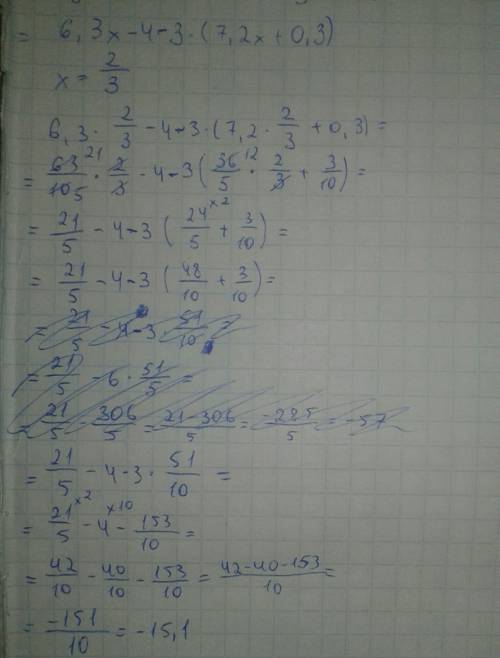 = 6,3x-4-3·(7,2x+0,3)
x= 2/3
6,3· 2/3 -4-3·(7,2· 2/3 +0,3)=
= 63 21/10 5 · 2/3 -4-3( 36 12/5 · 2/3 + 3/10 )=
= 21/5 -4-3 ( 24 ×2/5 + 3/10 )=
= 21/5 -4-3 ( 48/10 + 3/10 )=
= 21/5 -4-3· 51/10 =
= 21/5 -6· 51/5 =
= 21/5 - 306/5 = 21-306/5 = -285/5 = -57
= 21/5 -4-3· 51/10 =
= 21 ×2/5 -4 ×10 - 153/10 =
= 42/10 - 40/10 - 153/10 = 42-40-153/10 =
= -151/10 = -15,1